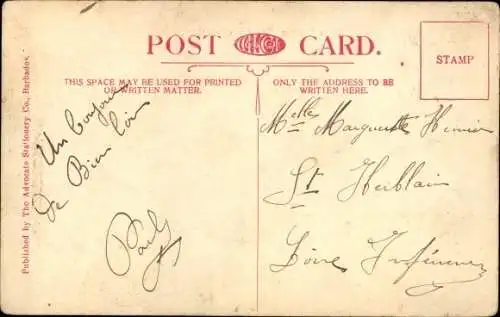 POST CARD.
THIS SPACE MAY BE USED FOR PRINTED
OR WRITTEN MATTER.
ONLY THE ADDRESS TO BE
WRITTEN HERE.
STAMP
Published by The Advocate Stationery Co., Barbados.
Un bonjour
de Bien loin
Melles Marguerite
St Herblain
Loire Inférieure